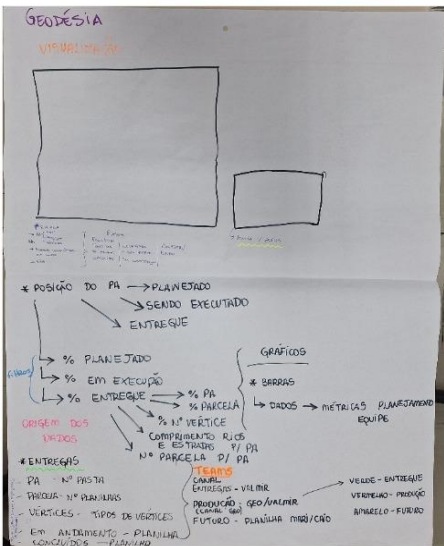 GEODÉSIA
VISUALIZAÇÃO
* POSIÇÃO DO PA → PLANEJADO
SENDO EXECUTADO
ENTREGUE
% PLANEJADO
% EM EXECUÇÃO
% ENTREGUE → % PA
% PARCELA
% Nº VÉRTICE
COMPRIMENTO RIOS
E ESTRADAS P/ PA
Nº PARCELA P/ PA
GRÁFICOS
* BARRAS
DADOS → MÉTRICAS PLANEJAMENTO
EQUIPE
ORIGEM DOS
DADOS
* ENTREGAS
PA - Nº PASTA
PARCELA - Nº PLANILHAS
VÉRTICES - TIPOS DE VÉRTICES
EM ANDAMENTO - PLANILHA
CONCLUÍDOS - PLANILHA
TEAMS
CANAL
ENTREGAS - VALMIR
PRODUÇÃO - GEO/VALMIR
(CANAL GEO)
FUTURO - PLANILHA MARI/CAIO
VERDE - ENTREGUE
VERMELHO - PRODUÇÃO
AMARELO - FUTURO